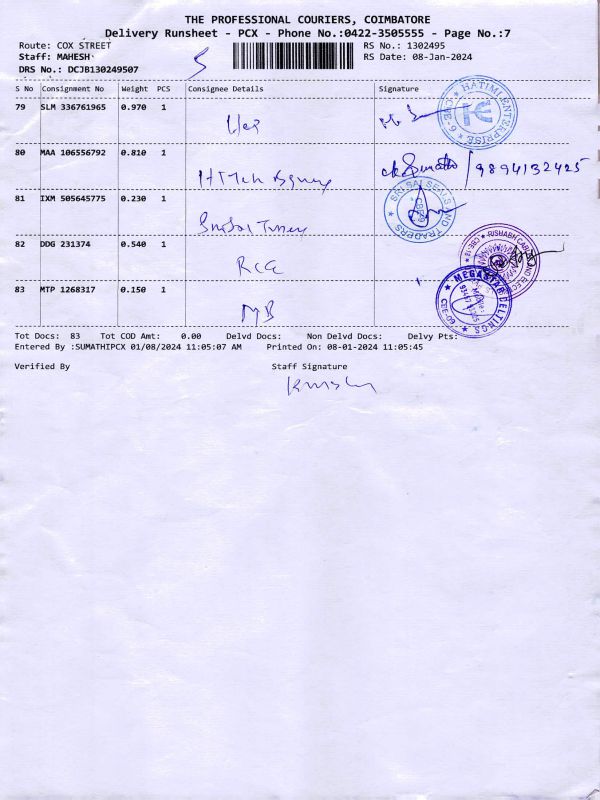 THE PROFESSIONAL COURIERS, COIMBATORE
Delivery Runsheet - PCX - Phone No.:0422-3505555 - Page No.:7
Route: COX STREET RS No.: 1302495
Staff: MAHESH RS Date: 08-Jan-2024
DRS No.: DCJB130249507
S No Consignment No Weight PCS Consignee Details Signature
79 SLM 336761965 0.970 1
HATIMI ENTERPRISE
80 MAA 106556792 0.810 1
9894132425
81 IXM 505645775 0.230 1
SRI SAI SEALS AND TRADERS
82 DDG 231374 0.540 1
RCE
RISHABH
83 MTP 1268317 0.150 1
MB
MEGASTAR BELTINGS
CBE-09
Tot Docs: 83 Tot COD Amt: 0.00 Delvd Docs: Non Delvd Docs: Delvy Pts:
Entered By :SUMATHIPCX 01/08/2024 11:05:07 AM Printed On: 08-01-2024 11:05:45
Verified By Staff Signature